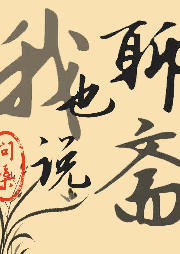 我也说
聊斋
问集